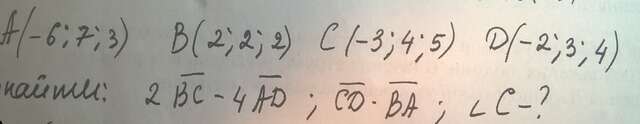 A(-6; 7; 3) B(2; 2; 2) C(-3; 4; 5) D(-2; 3; 4)
найти: 2 BC̅ - 4 AD̅ ; CD̅ · BA̅ ; ∠C-?